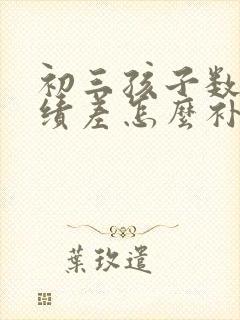 初三孩子数
绩差怎麽补
葉玫遣